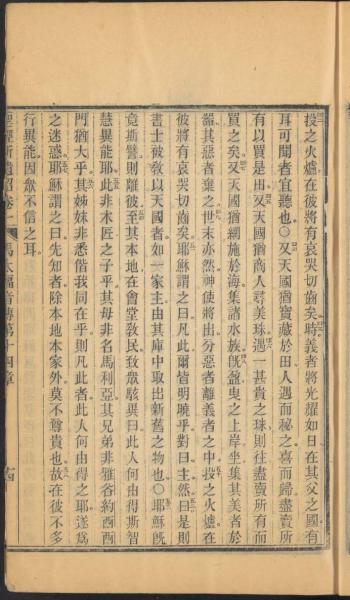 投之火爐在彼將有哀哭切齒矣時義者將光耀如日在其父之國有
耳可聞者宜聽也〇又天國猶寶藏於田人遇而秘之喜而歸盡賣所
有以買是田又天國猶商人尋美珠遇一甚貴之珠則往盡賣所有而
買之矣又天國猶網施於海集諸水族既盈曳之上岸坐集其美者於
器其惡者棄之世末亦然神使將出分惡者離義者之中投之火爐在
彼將有哀哭切齒矣耶穌謂之曰凡此爾皆明曉乎對曰主然曰是則
書士被教以天國者如一家主由其庫中取出新舊之物也〇耶穌既
竟斯譬則離彼至其本地在會堂教民致眾駭異曰此人何由得斯智
慧異能耶此非木匠之子乎其母非名馬利亞其兄弟非雅谷約西西
門猶大乎其姊妹非悉偕我同在乎則凡此者此人何由得之耶遂為
之迷惑耶穌謂之曰先知者除本地本家外莫不尊貴也故在彼不多
行異能因眾不信之耳
馬太福音傳第十四章